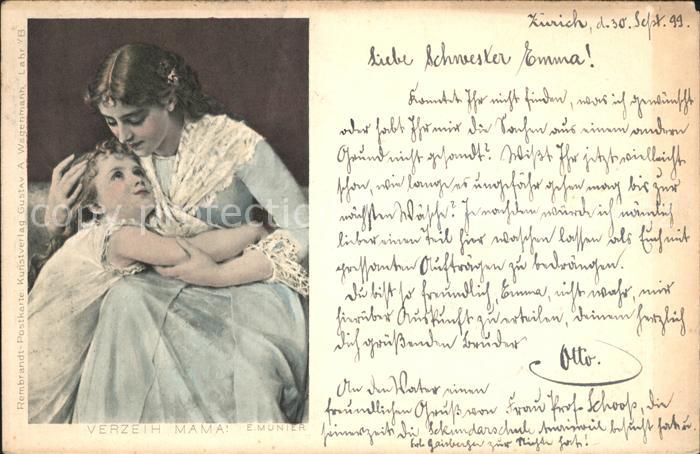 Zürich, d. 30. Sept. 99.
Liebe Schwester Emma!
Konntet Ihr nicht finden, was ich gewünscht
oder habt Ihr mir die Sachen aus einem andern
Grund nicht gesandt? Wißt Ihr jetzt vielleicht
schon, wie lange es ungefähr gehen mag bis zur
nächsten Wäsche? Je nachdem würde ich nämlich
lieber einen Teil hier waschen lassen als Euch mit
pressanten Aufträgen zu bedrängen.
Du bist so freundlich, Emma, nicht wahr, mir
hierüber Auskunft zu erteilen, deinem herzlich
dich grüßenden Bruder
Otto.
An den Vater einen
freundlichen Gruß von Frau Prof. Schoop, die
seinerzeit die Sekundarschule besucht hat u.
Frl. zur Nichte hat!
VERZEIH MAMA!
E. MUNIER
Rembrandt-Postkarte Kunstverlag Gustav A. Wagenmann, Lahr i/B.
copyright protection